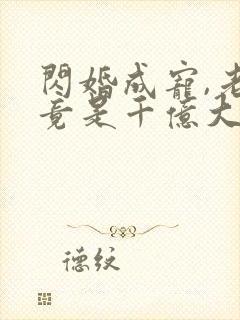 閃婚成寵,老
竟是千億大
德紋